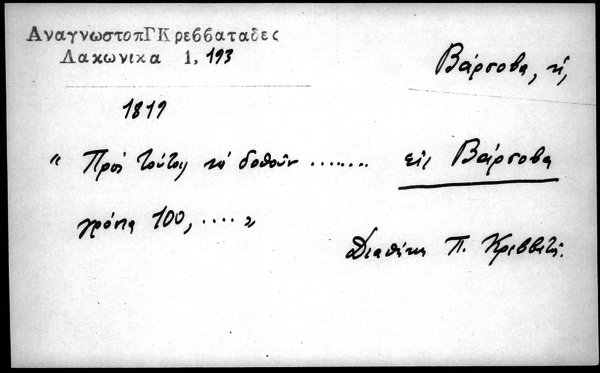 ΑναγνωστοπΓΚρεββαταδες
Λακωνικα 1, 193
Βάρσοβα, ἡ,
1819
“ Πρὸς τούτοις νὰ δοθοῦν ........ εἰς Βάρσοβα
γρόσια 100, .... „
Διαθήκη Π. Κρεββατᾶ.